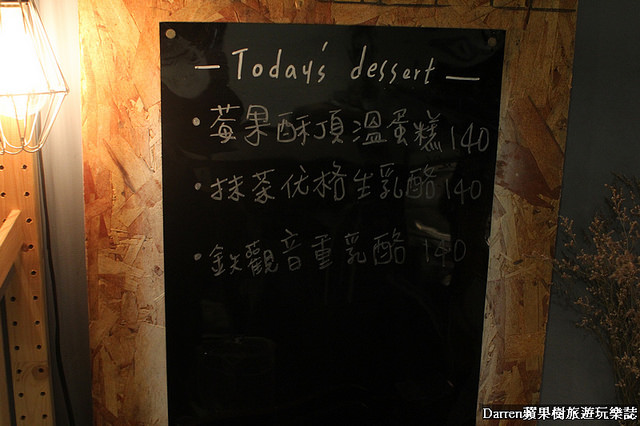 — Today's dessert —
・莓果酥頂溫蛋糕 140
・抹茶优格生乳酪 140
・鉄觀音重乳酪 140
Darren蘋果樹旅遊玩樂誌